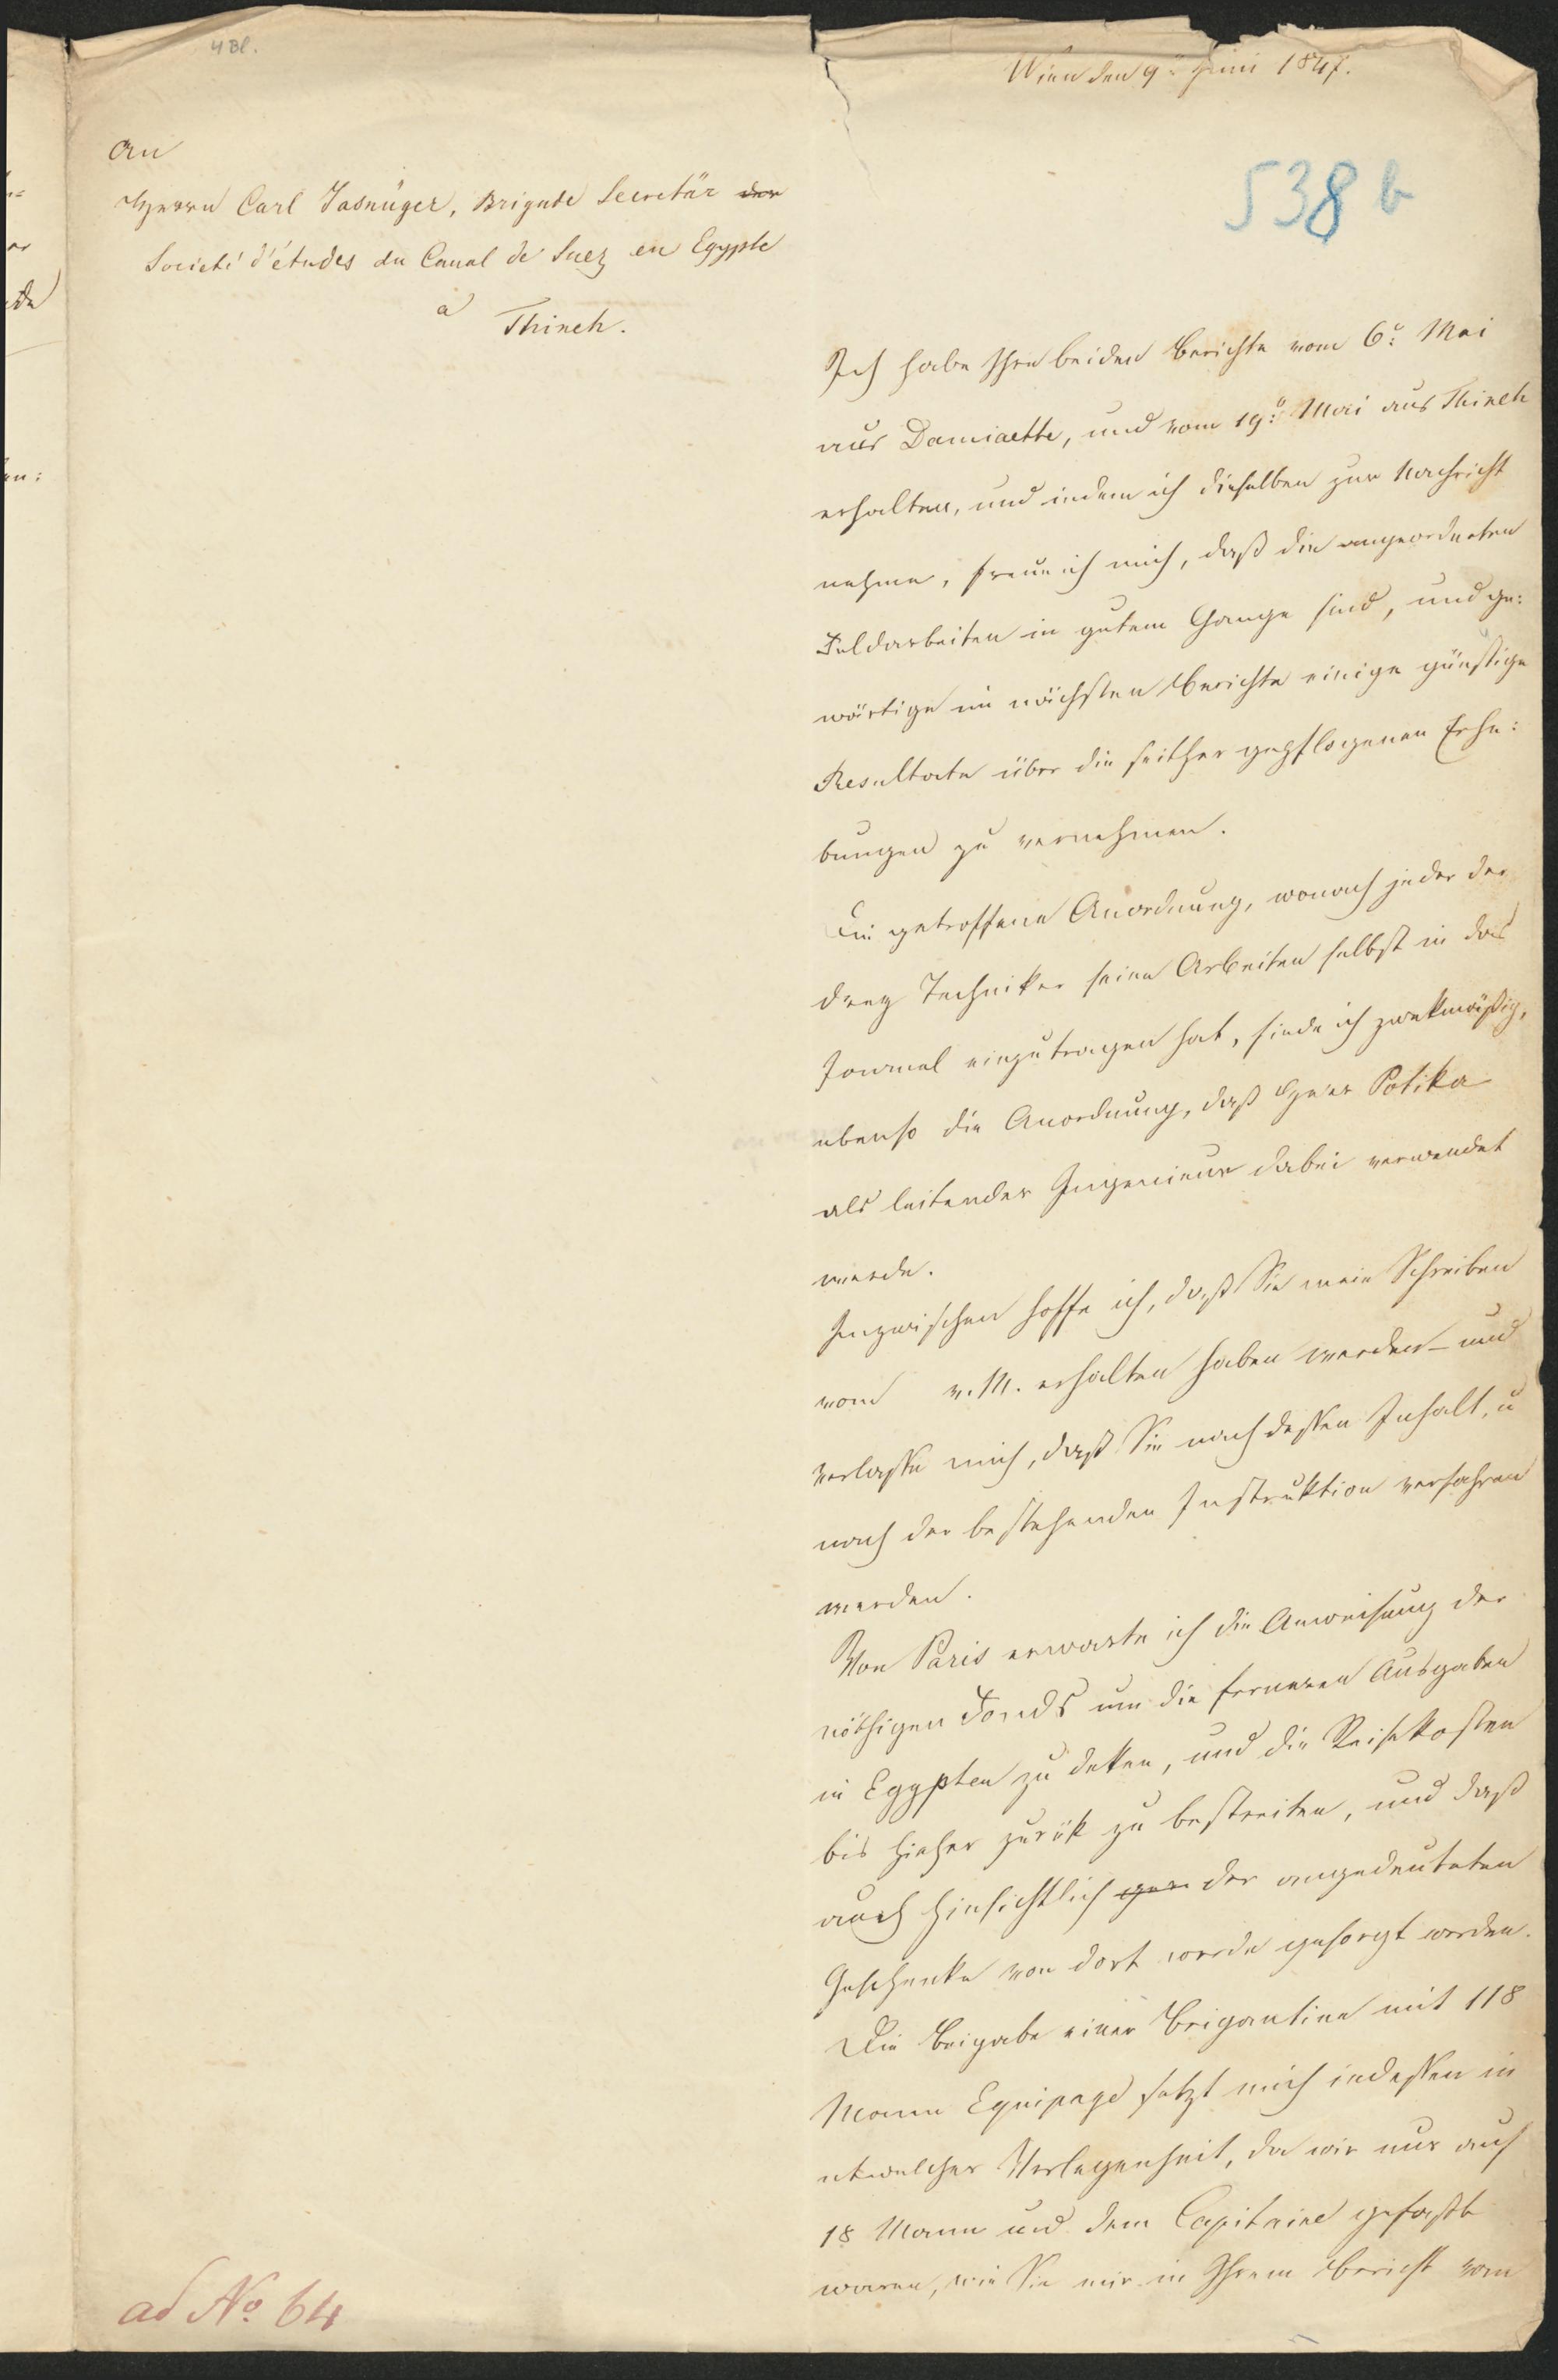 4 Bl.
Wien den 9n Juni 1847.
538 b
An
Herrn Carl Jasnüger, Brigade Secretär der
Societé d'études du Canal de Suez en Egypte
a Thineh.
Ich habe Ihre beiden Berichte vom 6n: Mai
aus Damiaette, und vom 19n: Mai aus Thineh
erhalten, und indem ich dieselben zur Nachricht
nehme, freue ich mich, daß die angeordneten
Feldarbeiten in gutem Gange sind, und ge:
wärtige im nächsten Berichte einige günstige
Resultate über die seither gepflogenen Erhe:
bungen zu vernehmen.
Die getroffene Anordnung, wonach jeder der
drey Techniker seine Arbeiten selbst in das
Journal einzutragen hat, finde ich zwekmäßig,
ebenso die Anordnung, daß Herr Potika
als leitender Ingenieur dabei verwendet
werde.
Inzwischen hoffe ich, daß Sie mein Schreiben
vom v. M. erhalten haben werden – und
verlasse mich, daß Sie nach dessen Inhalt, u
nach der bestehenden Instruktion verfahren
werden.
Von Paris erwarte ich die Anweisung der
nöthigen Fonds um die ferneren Ausgaben
in Egypten zu dekken, und die Reisekosten
bis hieher zurük zu bestreiten, und daß
auch hinsichtlich der angedeuteten
Geschenke von dort werde gesorgt werden.
Die Beigabe einer Brigantine mit 118
Mann Equipage setzt mich indessen in
etwelcher Verlegenheit, da wir nur auf
18 Mann und dem Capitaine gefaßt
waren, wie Sie mir in Ihrem Bericht vom
ad No. 64